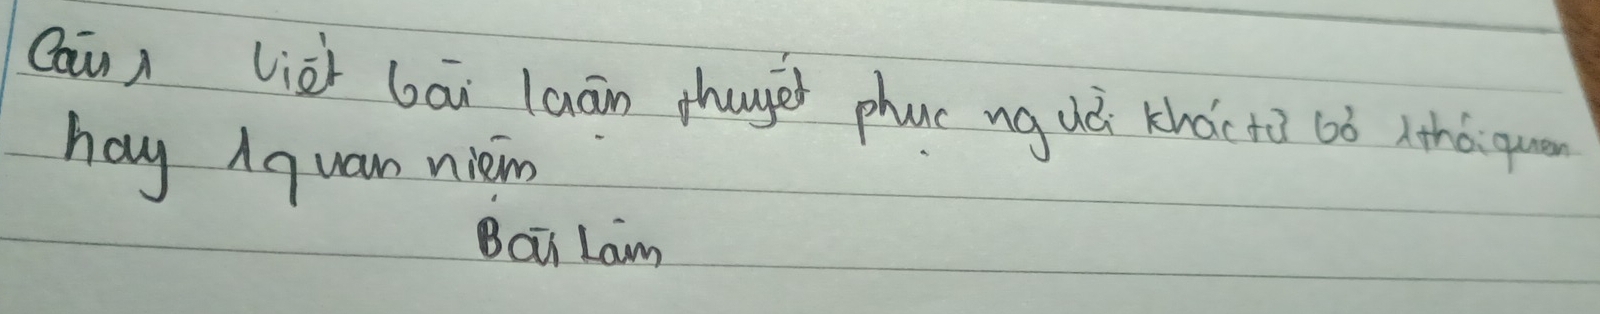 Câu 1 Viết bài luận thuyết phục người khác từ bỏ 1 thói quen
hay 1 quan niệm
Bài Làm